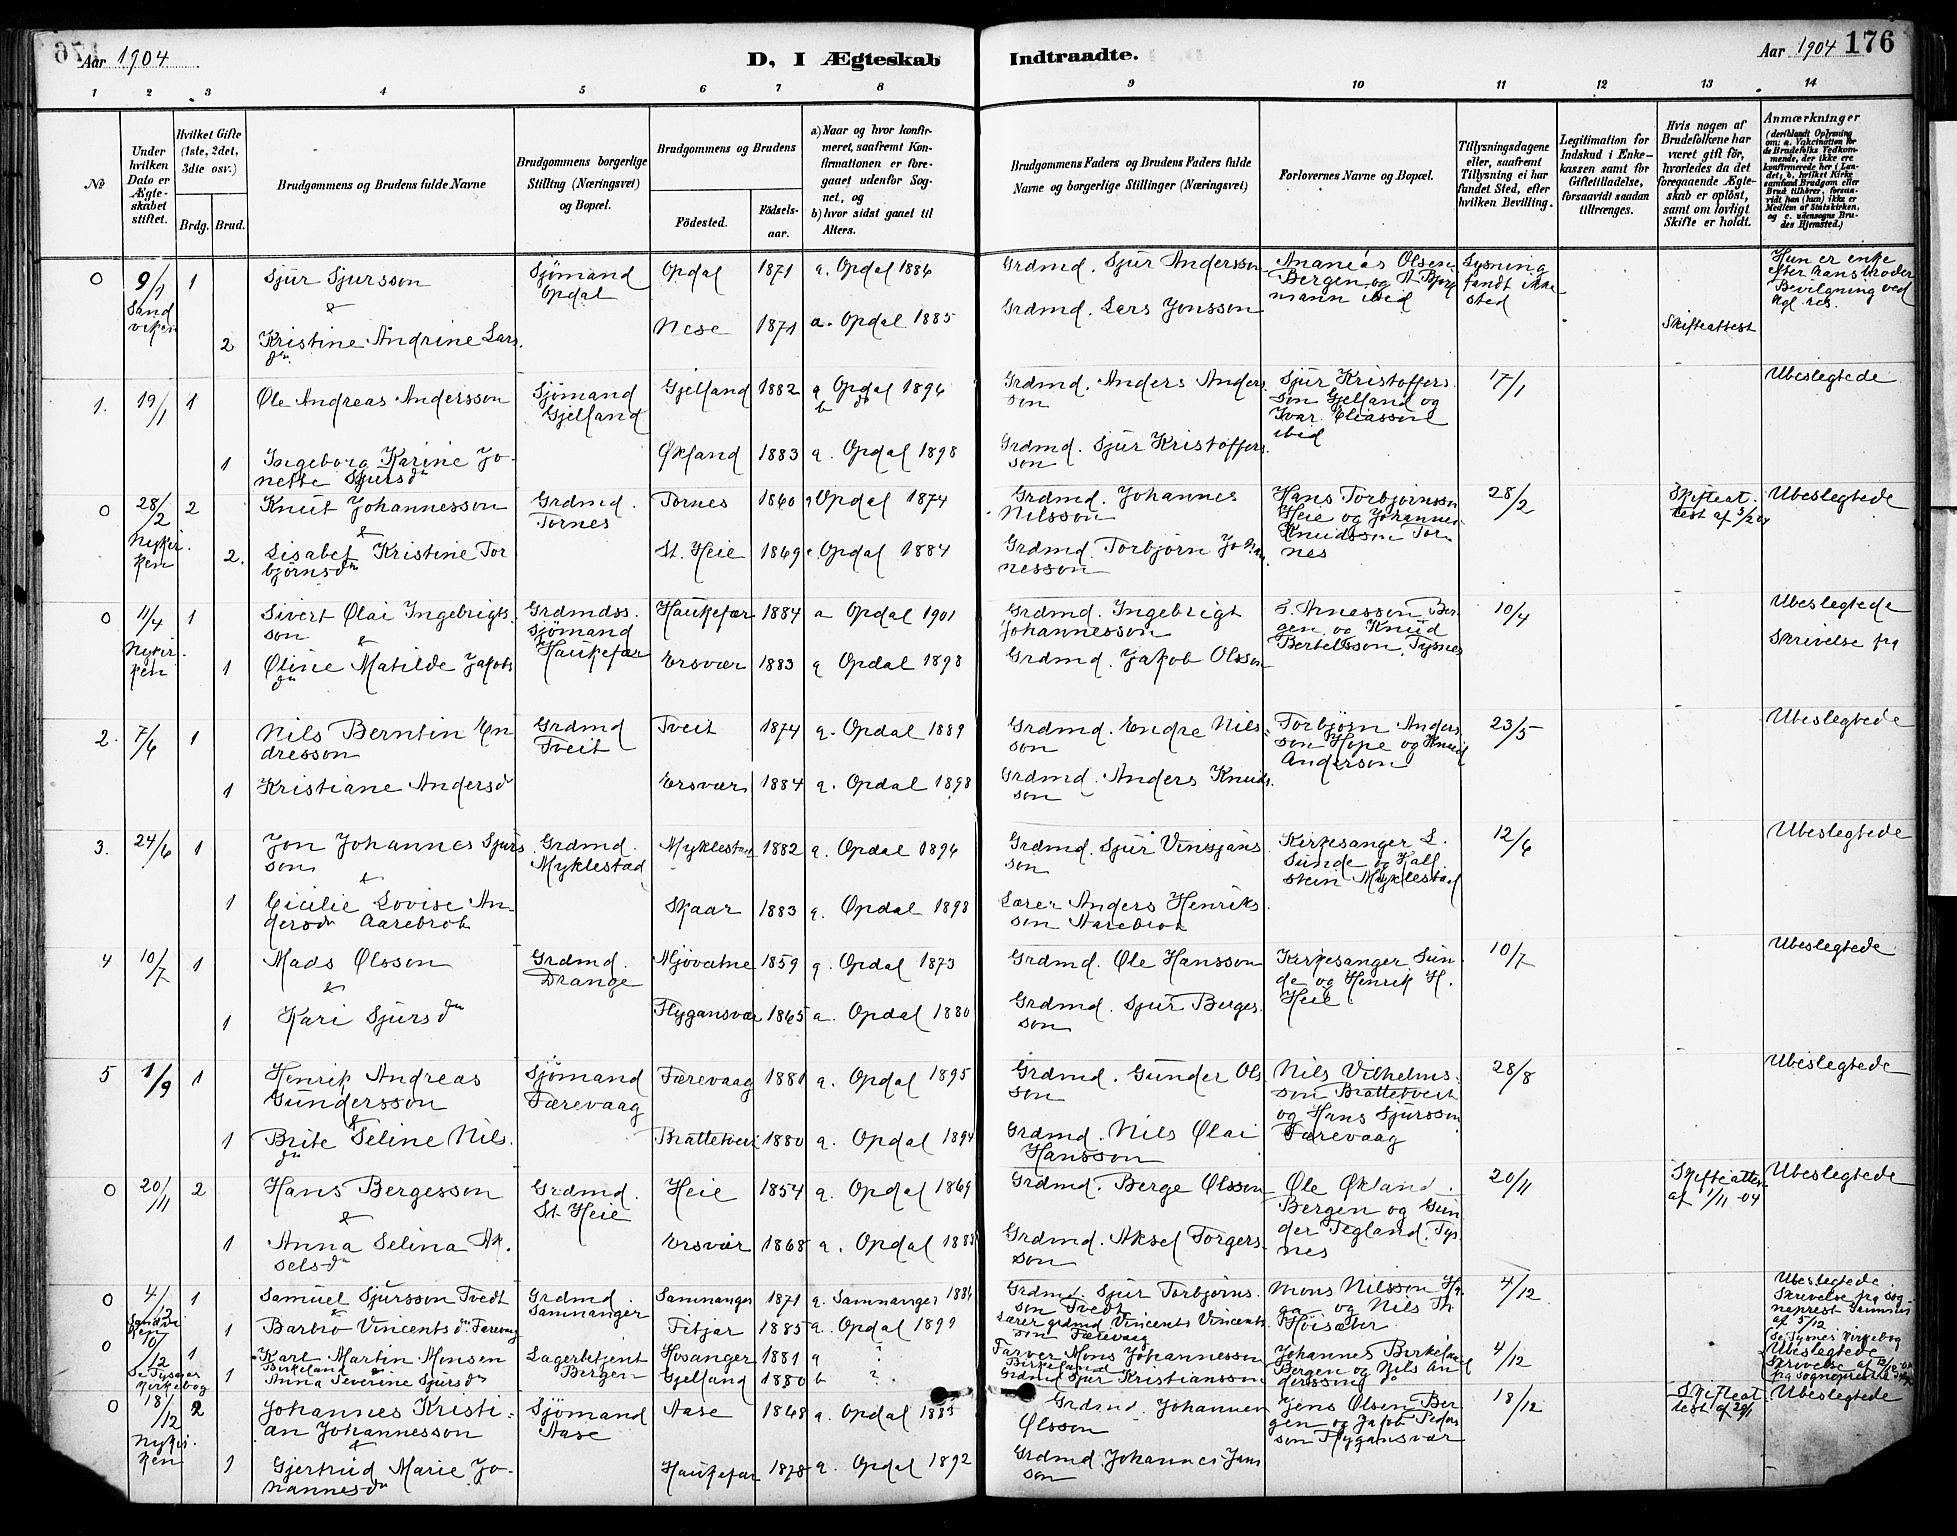 Aar 1904
D, I Ægteskab Indtraadte.
Aar 1904 176
1 2 3 4 5 6 7 8 9 10 11 12 13 14
№
Under hvilken Dato er Ægteskabet stiftet.
Hvilket Gifte (1ste, 2det, 3die osv.)
Brdg. Brud.
Brudgommens og Brudens fulde Navne
Brudgommens borgerlige Stilling (Næringsvei) og Bopæl.
Brudgommens og Brudens
Födested. Födsels-aar.
a) Naar og hvor konfirmeret, saafremt Konfirmationen er foregaaet udenfor Sognet, og
b) hvor sidst gaaet til Alters.
Brudgommens Faders og Brudens Faders fulde Navne og borgerlige Stillinger (Næringsvei)
Forlovernes Navne og Bopæl.
Tillysningsdagene eller, saafremt Tillysning ei har fundet Sted, efter hvilken Bevilling.
Legitimation for Indskud i Enkekassen samt for Giftetilladelse, forsaavidt saadan tiltrænges.
Hvis nogen af Brudefolkene har været gift før, hvorledes da det foregaaende Ægteskab er opløst, samt om lovligt Skifte er holdt.
Anmærkninger (deriblandt Oplysning om: a. Vaccination for de Brudefolks Vedkommende, der ikke ere konfirmerede her i Landet, b. hvilket Kirkesamfund Brudgom eller Brud tilhører, forsaavidt han (hun) ikke er Medlem af Statskirken, og c. udensogns Brudes Hjemsted.)
0 9/1 Sandviken 1 Sjur Sjursson Sjömand Opdal Opdal 1871 a. Opdal 1886 Grdmd. Sjur Andersson Ananias Olsen Bergen og A. ibid Lysning fandt ikke sted Hun er enke efter hans broder Bevilgning ved kgl. res.
&
2 Kristine Andrine Larsdn Nese 1871 a. Opdal 1885 Grdmd. Lars Jonsson Skifteattest
1. 19/1 1 Ole Andreas Andersson Sjömand Gjelland Gjelland 1882 a Opdal 1896 b do Grdmd. Anders Andersson Sjur Kristoffersson Gjelland og Ivar Eliassen ibid 17/1 Ubeslegtede
1 Ingeborg Karine Jonette Sjursdn Økland 1883 a. Opdal 1898 Grdmd. Sjur Kristoffersson
0 28/2 Nykirken 2 Knut Johannesson Grdmd. Tornes Tornes 1860 a Opdal 1874 Grdmd. Johannes Nilsson Hans Torbjørnsson Heie og Johannes Knudsson Tornes 28/2 Skifteattest af 5/2 04 Ubeslegtede
&
2. Lisabet Kristine Torbjörnsdn St. Heie 1869 a Opdal 1884 Grdmd. Torbjörn Johannesson
0 11/4 Nykirken 1 Sivert Olai Ingebrigtsson Grdmdss. Sjömand Haukefær Haukefær 1884 a Opdal 1901 Grdmd. Ingebrigt Johannesson Arnesson Bergen og Knud Bertelsson, Tysnes 10/4 Ubeslegtede
&
1 Oline Matilde Jakobsdn Ersvær 1883 a Opdal 1898 Grdmd. Jakob Olsson Skrivelse fra
2. 7/6 1 Nils Berntin Endresson Grdmd Tveit Tveit 1874 a. Opdal 1889 Grdmd. Endre Nilsson Torbjørn Andersson Hope og Knud Anderson 23/5 Ubeslegtede
1 Kristiane Andersd Ersvær 1884 a. Opdal 1898 Grdmd. Anders Knudsson
3. 24/6 1 Jon Johannes Sjursson Grdmd. Myklestad Myklestad 1882 a. Opdal 1896 Grdmd. Sjur Vinsjansson Kirkesanger L. Sunde og Hallstein Myklestad 12/6 Ubeslegtede
&
1 Cicilie Lovise Andersdn Aarebrot Skaar 1883 a. Opdal 1898 Lærer Anders Henriksson Aarebrot
4 10/7 1 Mads Olsson Grdmd. Drange Mjövatne 1859 a. Opdal 1873 Grdmd. Ole Hansson Kirkesanger Sunde og Henrik H. Heie 10/7 Ubeslegtede
&
1 Kari Sjursdn Flygansvær 1865 a. Opdal 1880 Grdmd. Sjur Bergesson
5 1/9 1 Henrik Andreas Gundersson Sjömand Færevaag Færevaag 1881 a. Opdal 1895 Grdmd. Gunder Olsson Nils Vilhelmsson Brattetveit og Hans Sjursson Færevaag 28/8 Ubeslegtede
&
1 Brite Seline Nilsdn Brattetveit 1880 a. Opdal 1894 Grdmd. Nils Olai Hansson
0 20/11 2 Hans Bergesson Grdmd. St. Heie Heie 1854 a. Opdal 1869 Grdmd. Berge Olsson Ole Økland Bergen og Gunder Tegland, Tysnes 20/11 Skifteattest af 1/11-04 Ubeslegtede
&
1 Anna Selina Akselsdn Ersvær 1868 a. Opdal 1883 Grdmd. Aksel Torgersson
0 4/12 Sandviken 1 Samuel Sjursson Tvedt Grdmd. Samnanger Samnanger 1871 a. Samnanger 1886 Grdmd. Sjur Torbjørnsson Tvedt Mons Nilsson Haga og Nils Th. Høisæter 4/12 Ubeslegtede. Skrivelse fra sogneprest af 5/12
&
1 Barbro Vincentsdn Færevaag Fitjar 1885 a. Opdal 1899 Lærer grdmd Vincents Vincentsson Færevaag
0 10/12 Se Tysnes kirkebog 1 Karl Martin Monsen Birkeland Lagerbetjent Bergen Hosanger 1881 a ? Farver Mons Johannesson Birkeland Johannes Birkeland Bergen og Nils Anderssen do 4/12 Se Tysnes kirkebog Ubeslegtede Skrivelse af 12/12 04 fra sognepresten
1 Anna Severine Sjursdn Gjelland 1880 b ? Grdmd Sjur Kristiansson
0 18/12 Nykirken 2 Johannes Kristian Johannesson Sjömand Aase Aase 1868 a. Opdal 1883 Grdmd. Johannes Olsson Jens Olsen Bergen og Jakob Pedersson Flygansvær 18/12 Skifteattest af 29/1 Ubeslegtede
&
1 Gjertrud Marie Johannesdn Haukefær 1878 a. Opdal 1892 Grdmd. Johannes Jansson